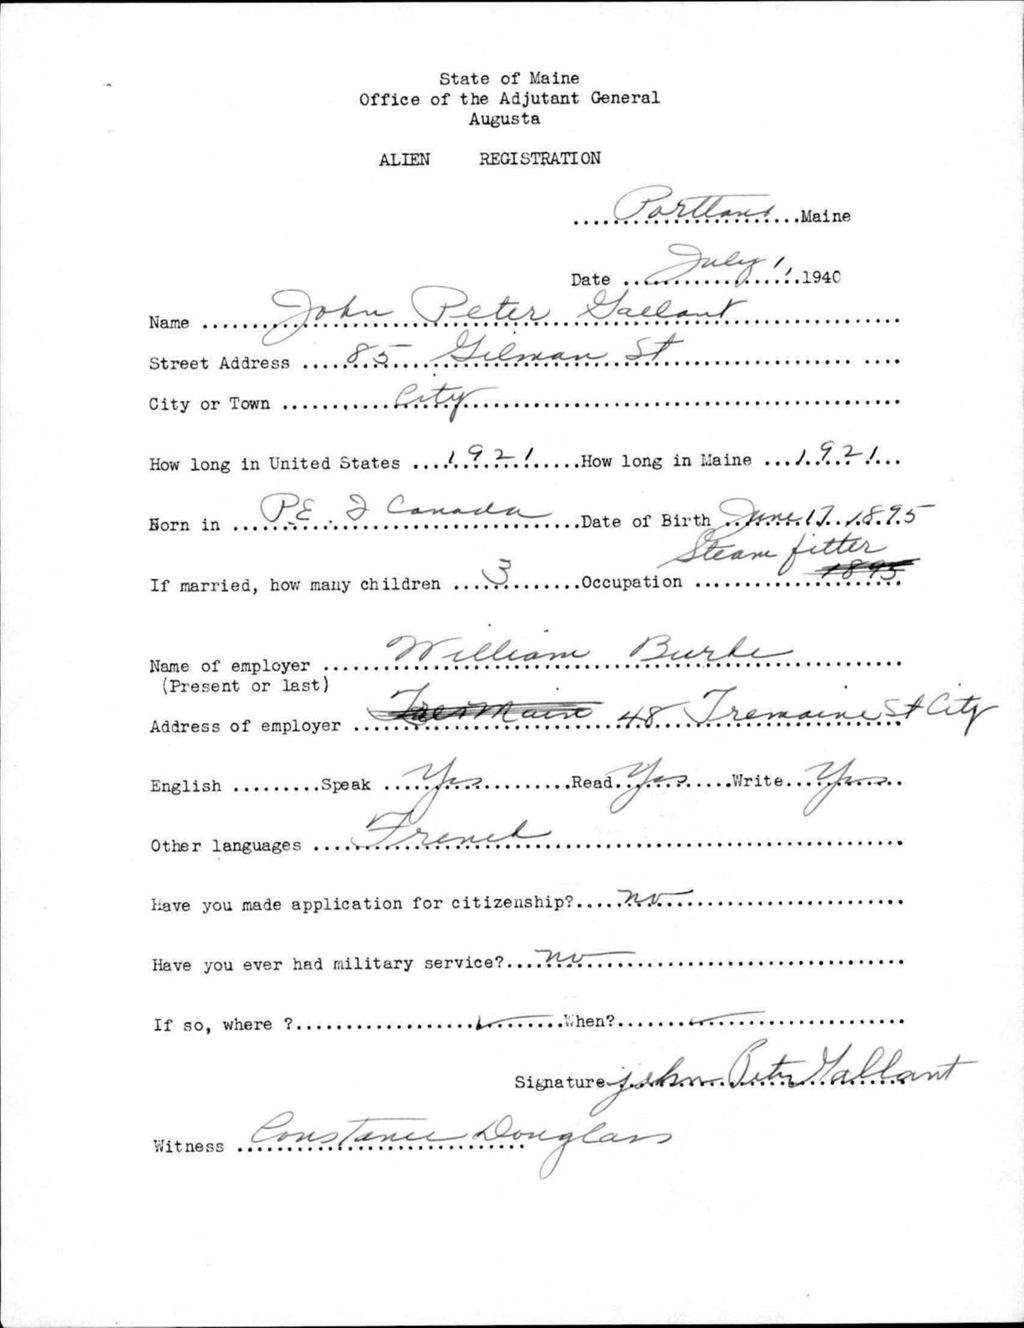 State of Maine
Office of the Adjutant General
Augusta
ALIEN REGISTRATION
Portland Maine
Date July 1, 1940
Name John Peter Gallant
Street Address 85 Gilman St
City or Town City
How long in United States 1921 How long in Maine 1921
Born in P.E.I Canada Date of Birth June 17, 1895
If married, how many children 3 Occupation Steam fitter 1895
Name of employer William Burke
(Present or last)
Address of employer 48 Tremaine St City
English Speak Yes Read Yes Write Yes
Other languages French
Have you made application for citizenship? no
Have you ever had military service? no
If so, where ? When?
Signature John Peter Gallant
Witness Constance Douglass